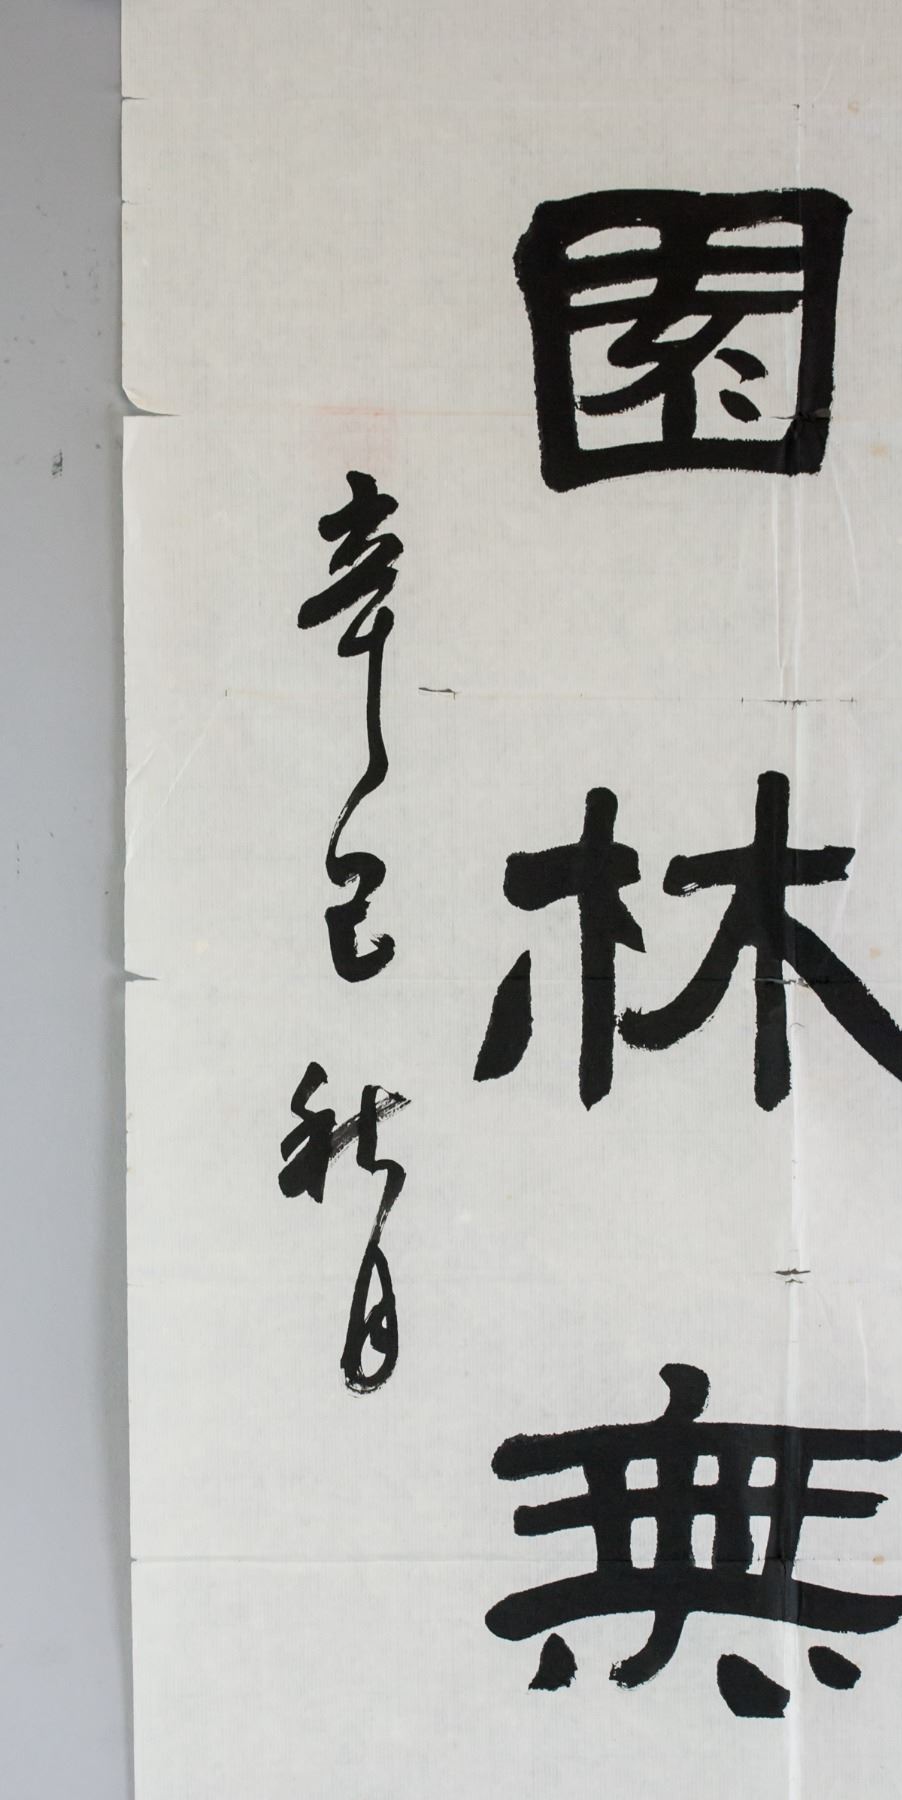 園林無
辛巳秋月